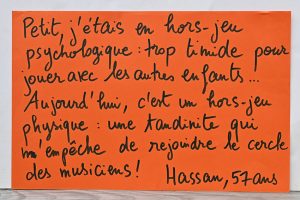 Petit, j'étais en hors-jeu
psychologique : trop timide pour
jouer avec les autres enfants...
Aujourd'hui, c'est un hors-jeu
physique : une tandinite qui
m'empêche de rejoindre le cercle
des musiciens ! Hassan, 57 ans